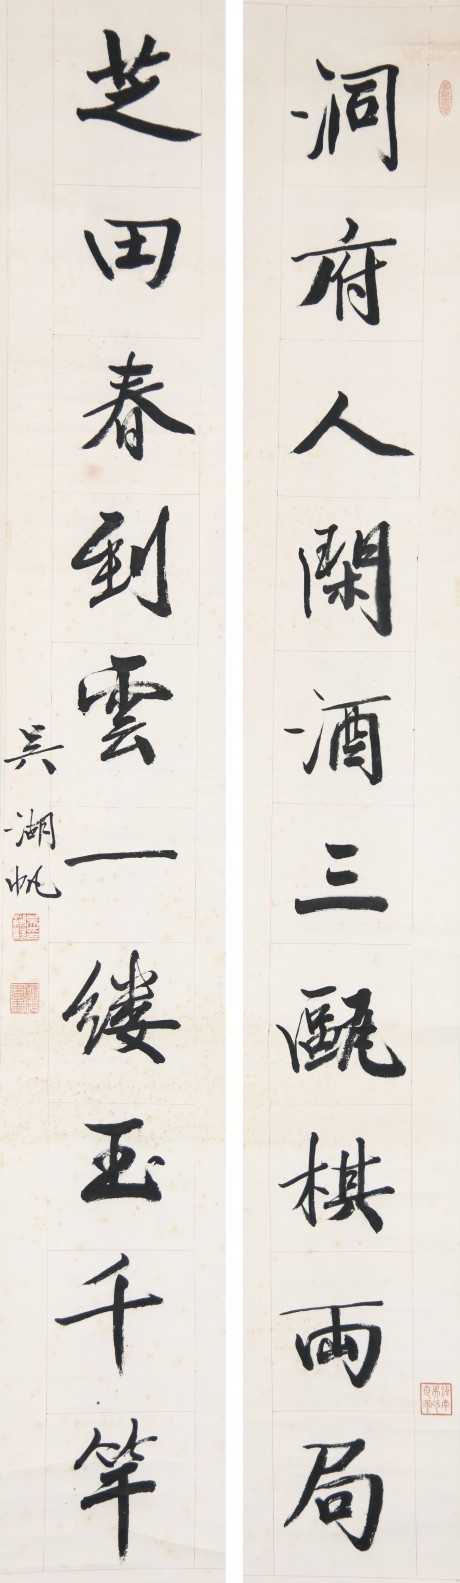 洞府人閑酒三甌棋兩局
芝田春到雲一縷玉千竿
吳湖帆